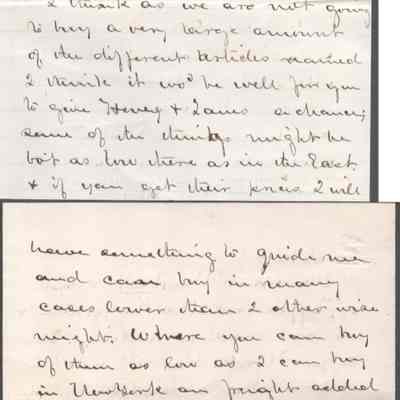 I think as we are not going
to buy a very large amount
of the different articles named
I think it wod be well for you
to give Henry & James a chance;
some of the things might be
bot as low there as in the East.
& if you get their prices I will
have something to guide me
and can buy in many
cases lower than I other wise
might. Where you can buy
of them as low as I can buy
in New York an freight added